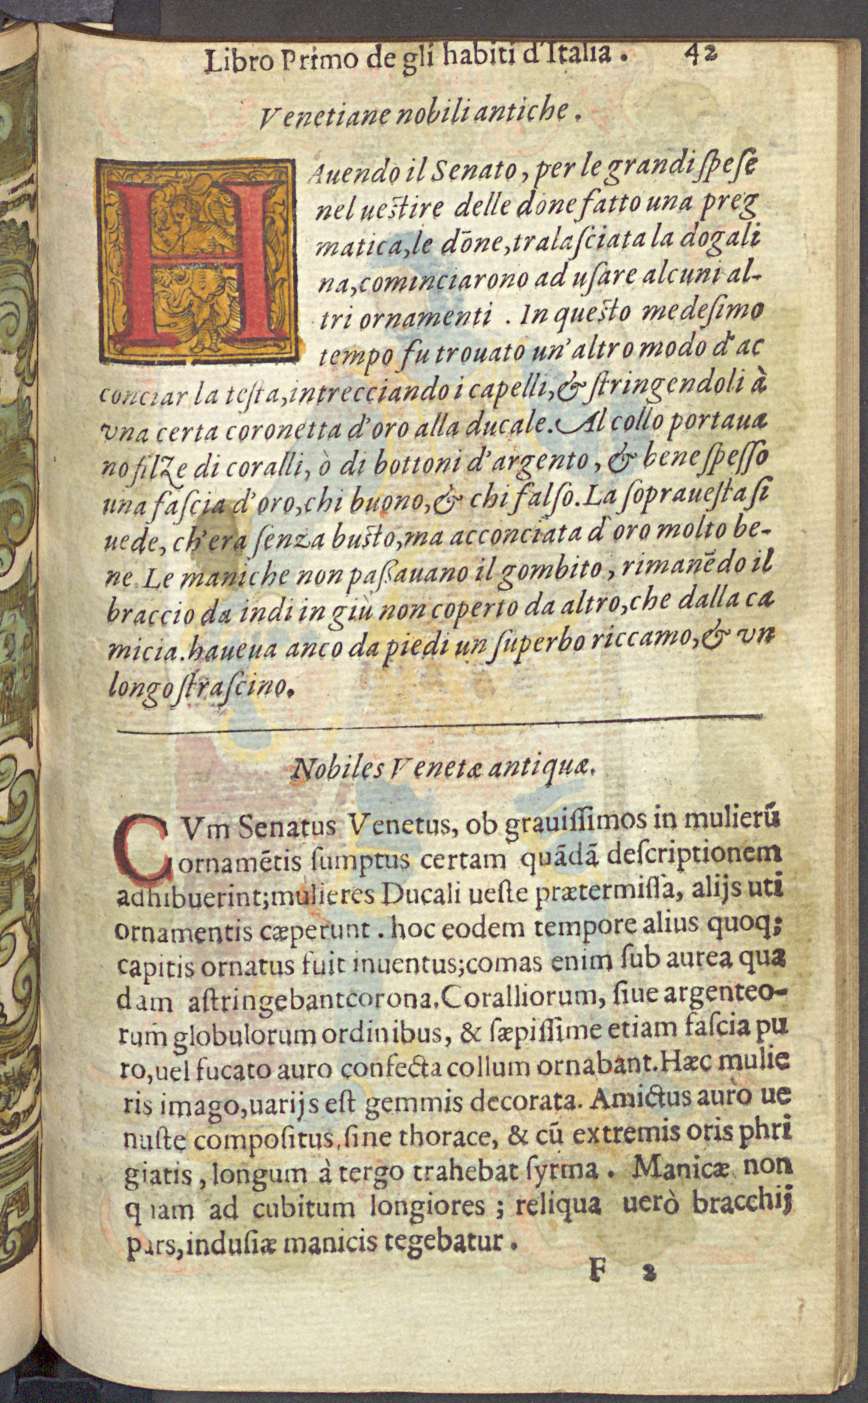 Libro Primo de gli habiti d'Italia . 42
Venetiane nobili antiche .
HAuendo il Senato, per le grandi ſpeſe
nel ueſtire delle dōne fatto una preg
matica,le dōne,tralaſciata la dogali
na,cominciarono ad uſare alcuni al-
tri ornamenti . In queſto medeſimo
tempo fu trouato un' altro modo d'ac
conciar la teſta,intrecciando i capelli,& ſtringendoli à
vna certa coronetta d'oro alla ducale. Al collo portaua
no filze di coralli, ò di bottoni d'argento, & bene ſpeſſo
una faſcia d'oro,chi buono,& chi falſo. La ſoprauesta ſi
uede, ch'era ſenza buſto,ma acconciata d'oro molto be-
ne. Le maniche non paßauano il gombito, rimanēdo il
braccio da indi in giù non coperto da altro,che dalla ca
micia.haueua anco da piedi un ſuperbo riccamo,& vn
longo ſtraſcino.
Nobiles Venetæ antiquæ.
CVm Senatus Venetus, ob grauiſſimos in mulierū
ornamētis ſumptus certam quādā deſcriptionem
adhibuerint;mulieres Ducali ueſte prætermiſſa, alijs uti
ornamentis cæperunt . hoc eodem tempore alius quoq;
capitis ornatus fuit inuentus;comas enim ſub aurea qua
dam aſtringebant corona. Coralliorum, ſiue argenteo-
rum globulorum ordinibus, & ſæpiſſime etiam faſcia pu
ro,uel fucato auro confecta collum ornabant. Hæc mulie
ris imago,uarijs eſt gemmis decorata. Amictus auro ue
nuſte compoſitus,ſine thorace, & cū extremis oris phri
giatis, longum à tergo trahebat ſyrma . Manicæ non
quam ad cubitum longiores ; reliqua uerò bracchij
pars,induſiæ manicis tegebatur .
F 2